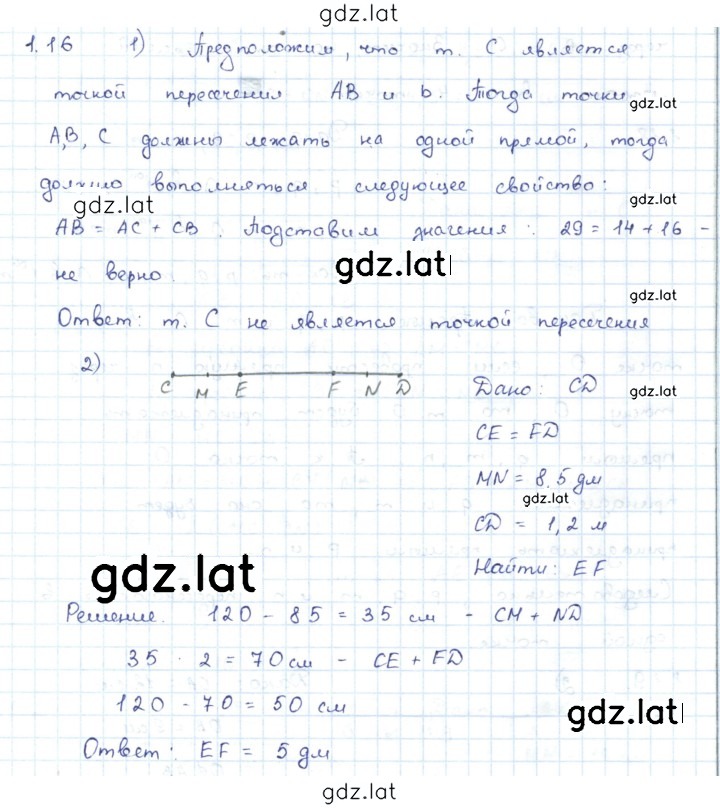 gdz.lat
1.16 1) Предположим, что т. C является
точкой пересечения AB и b. Тогда точки
gdz.lat
A, B, C должны лежать на одной прямой, тогда
должно выполняться следующее свойство:
gdz.lat
gdz.lat
AB = AC + CB. Подставим значения: 29 = 14 + 16 -
не верно.
gdz.lat
gdz.lat
Ответ: т. C не является точкой пересечения
2)
C M E F N D
Дано: CD
gdz.lat
CE = FD
MN = 8.5 дм
gdz.lat
CD = 1,2 м
Найти: EF
gdz.lat
Решение. 120 - 85 = 35 см - CM + ND
35 · 2 = 70 см - CE + FD
120 - 70 = 50 см
gdz.lat
Ответ: EF = 5 дм
gdz.lat